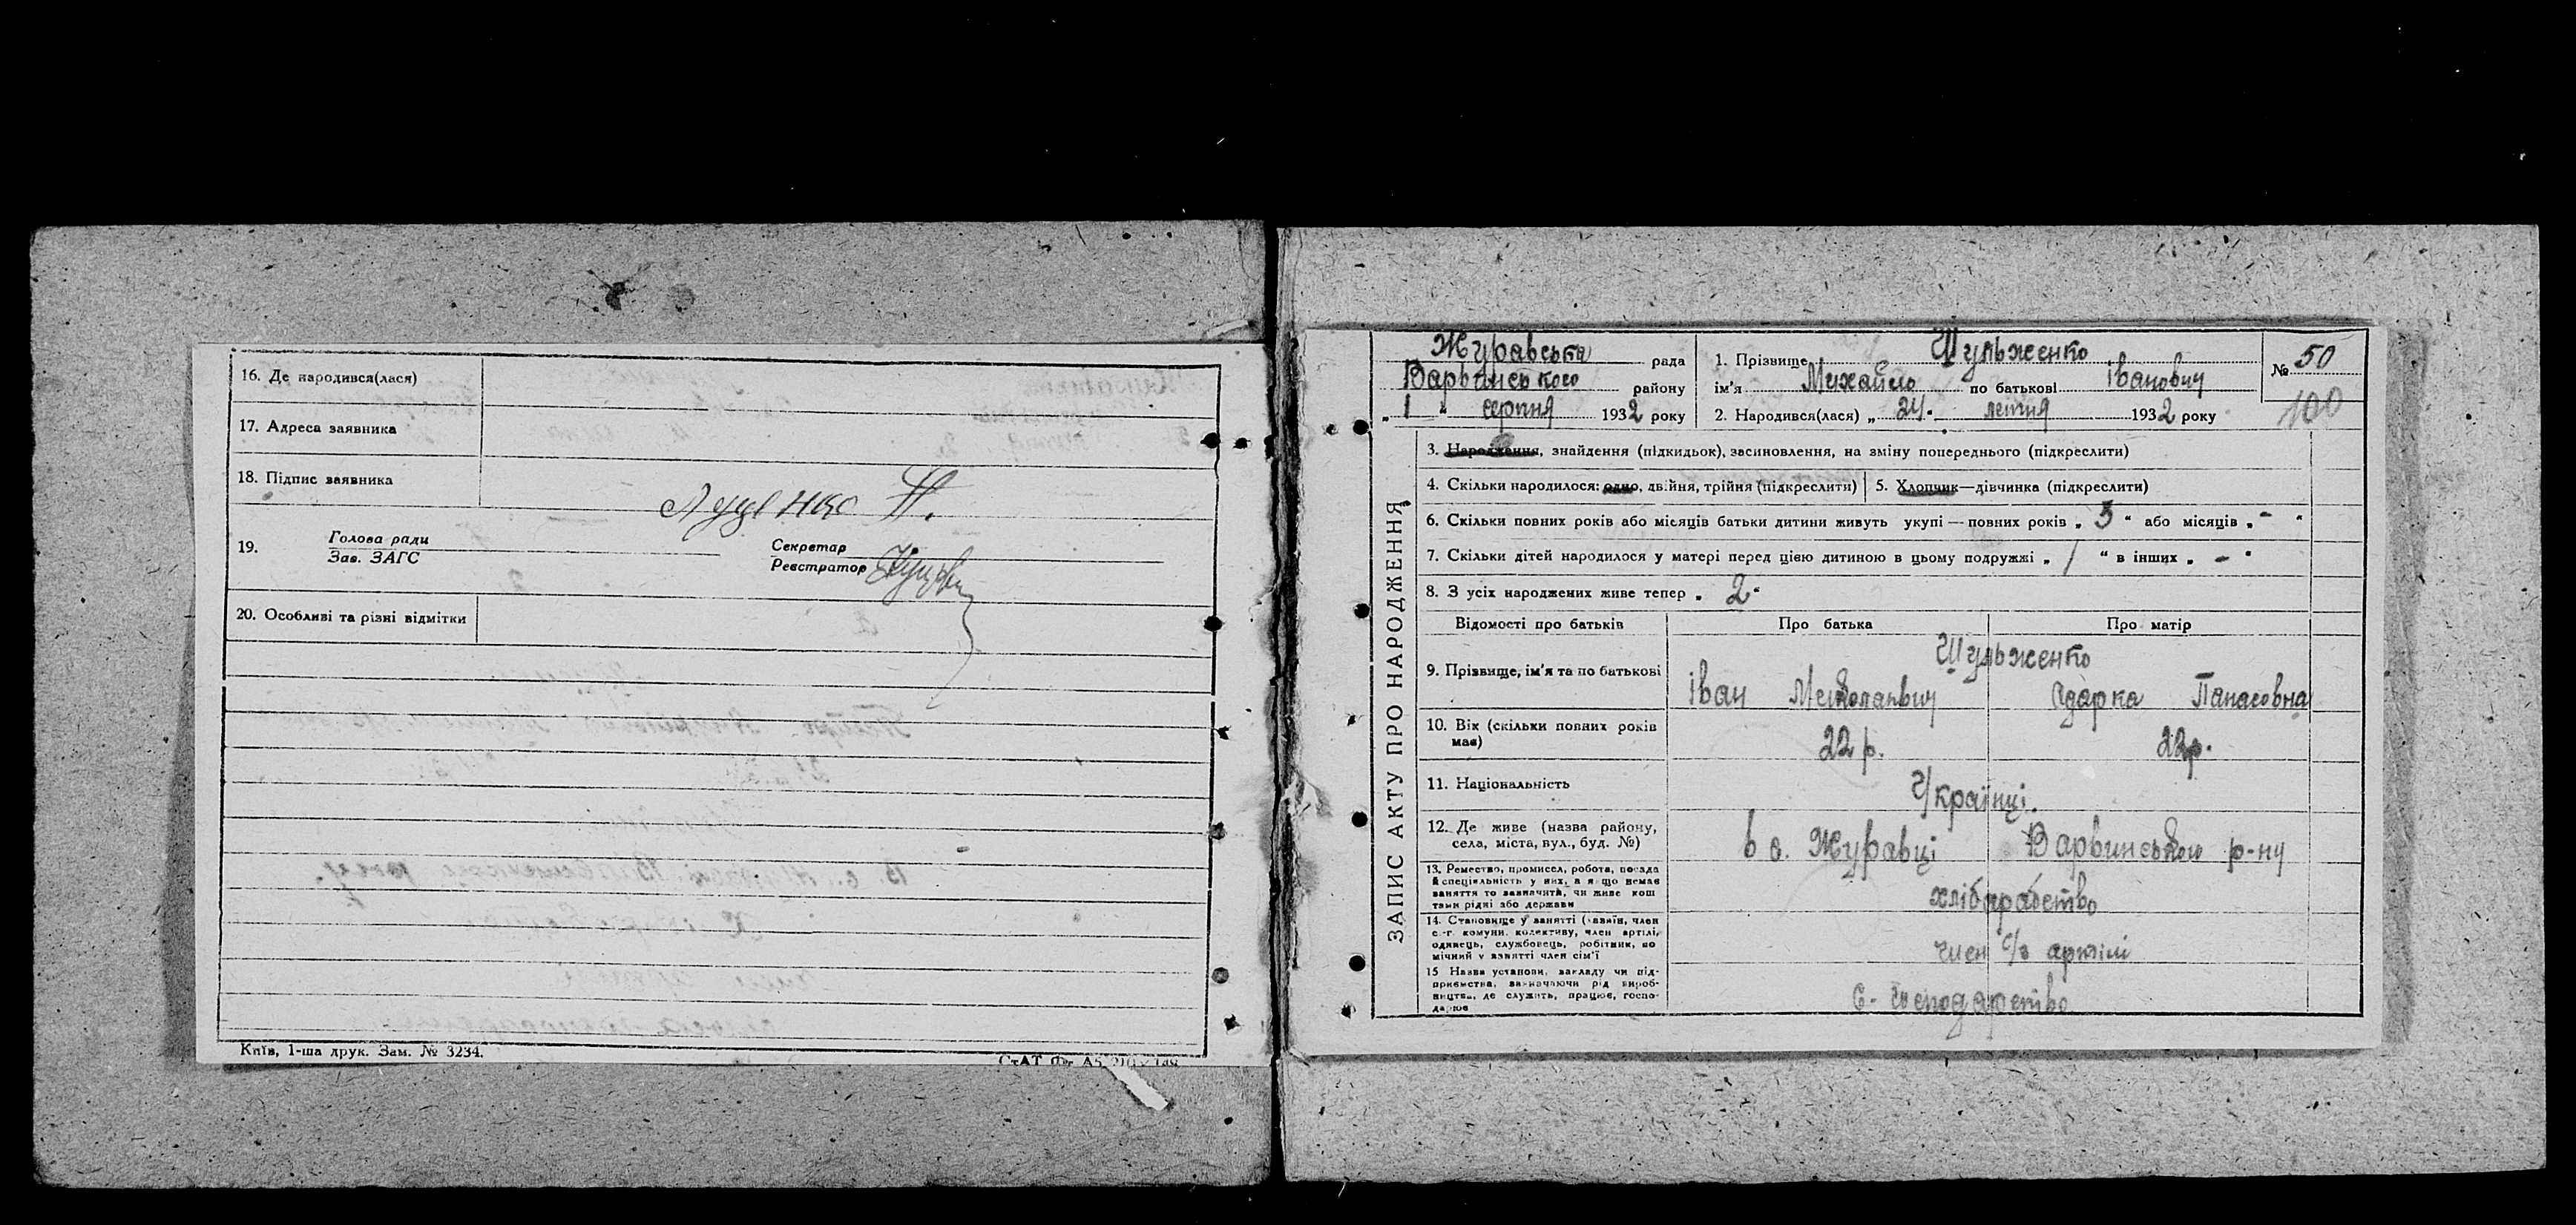 16. Де народився(лася)
17. Адреса заявника
18. Підпис заявника
Луценко П.
19. Голова ради
Зав. ЗАГС
Секретар
Реєстратор
20. Особливі та різні відмітки
Київ, 1-ша друк. Зам. № 3234.
ЗАПИС АКТУ ПРО НАРОДЖЕННЯ
Журавська рада
Варвинського району
„ 1 " серпня 1932 року
1. Прізвище Шульженко
ім'я Михайло по батькові Іванович
2. Народився(лася) „ 24. липня 1932 року
№ 50
100
3. Народження, знайдення (підкидьок), засиновлення, на зміну попереднього (підкреслити)
4. Скільки народилося: одно, двійня, трійня (підкреслити)
5. Хлопчик—дівчинка (підкреслити)
6. Скільки повних років або місяців батьки дитини живуть укупі — повних років „ 3 " або місяців „ - "
7. Скільки дітей народилося у матері перед цією дитиною в цьому подружжі „ 1 " в інших „ - "
8. З усіх народжених живе тепер „ 2 "
Відомості про батьків
Про батька
Про матір
9. Прізвище, ім'я та по батькові
Шульженко
Іван Миколаєвич
Одарка Панасовна
10. Вік (скільки повних років
має)
22 р.
22 р.
11. Національність
Українці.
12. Де живе (назва району,
села, міста, вул., буд. №)
в с. Журавці Варвинського р-ну
13. Ремество, промисел, робота, посада
й спеціяльність у них, а якщо немає
заняття то зазначити, чи живе кош
тами рідні або держави
хліборобство
14. Становище у занятті (хазяїн, член
с.-г. комуни, колективу, член артілі,
одинець, службовець, робітник, по
мічний у занятті член сім'ї
член с/г артілі
15 Назва установи, закладу чи під-
приємства, зазначаючи рід вироб-
ництва, де служить, працює, госпо-
дарює
с- господарство